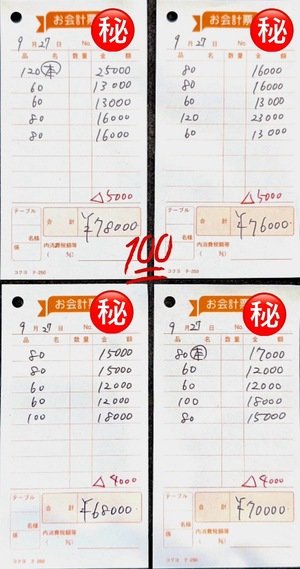 お会計票 秘
9月27日 No.
品名 数量 金額
120(本) 25000
60 13000
60 13000
80 16000
80 16000
△5000
テーブル 合計 ¥78000
名様
係 内消費税額等
( %)
コクヨ テ-250
お会計票 秘
9月27日 No.
品名 数量 金額
80 16000
80 16000
60 13000
120 23000
60 13000
△5000
テーブル 合計 ¥76000
名様
係 内消費税額等
( %)
コクヨ テ-250
100
お会計票 秘
9月27日 No.
品名 数量 金額
80 15000
80 15000
60 12000
60 12000
100 18000
△4000
テーブル 合計 ¥68000
名様
係 内消費税額等
( %)
コクヨ テ-250
お会計票 秘
9月27日 No.
品名 数量 金額
80(本) 17000
60 12000
60 12000
100 18000
80 15000
△4000
テーブル 合計 ¥70000
名様
係 内消費税額等
( %)
コクヨ テ-250